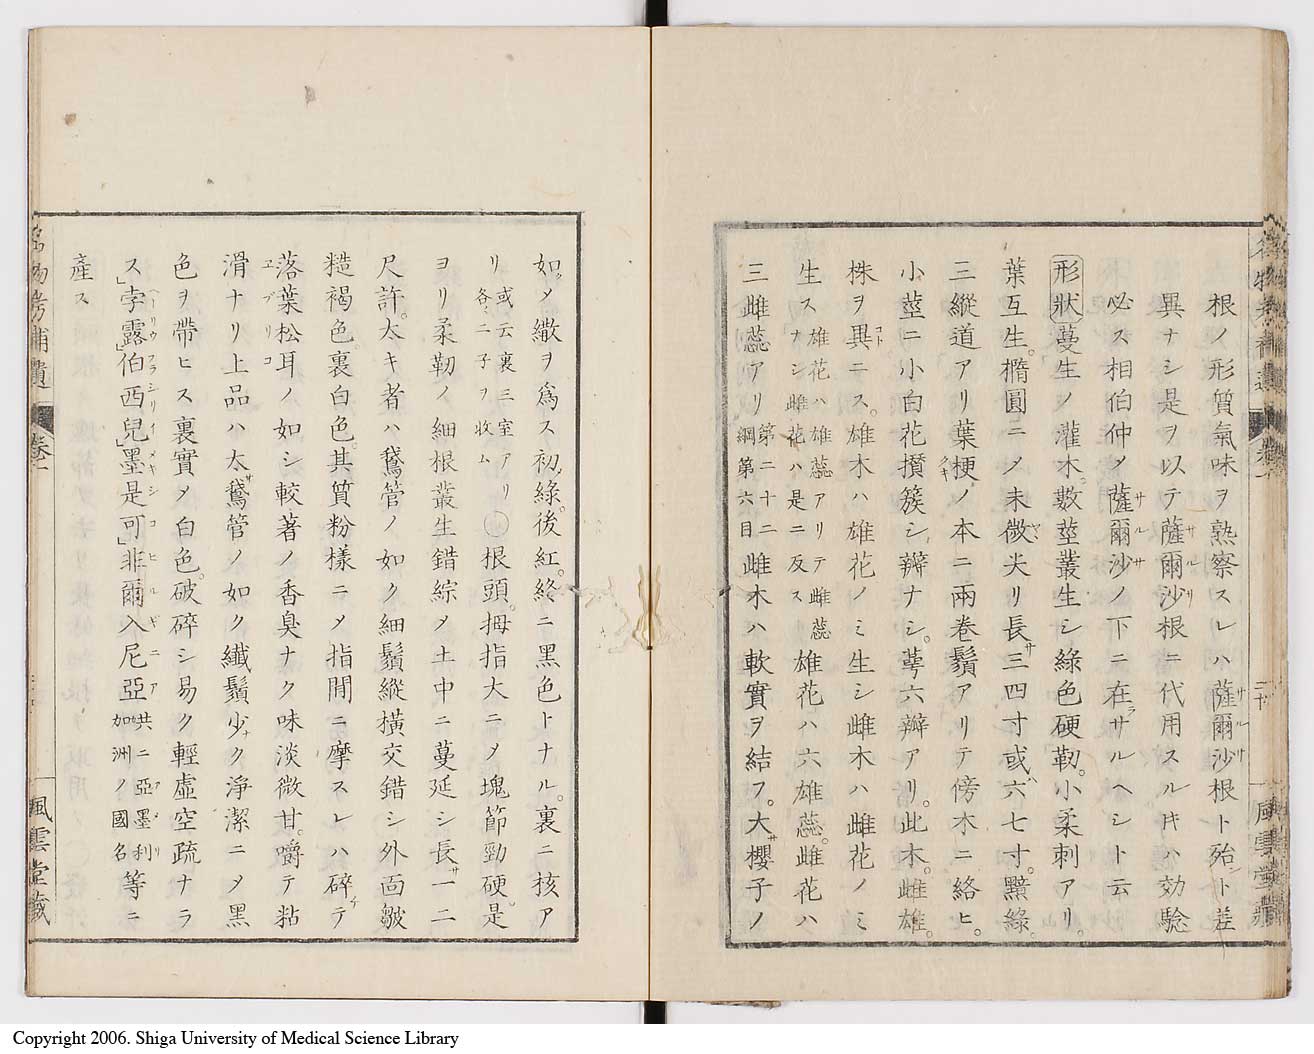 根ノ形質氣味ヲ熟察スレハ薩爾沙根ト殆ント差
異ナシ是ヲ以テ薩爾沙根ニ代用スルキハ効驗
必ス相伯仲メ薩爾沙ノ下ニ在ラサルヘシト云
形狀 蔓生ノ灌木數莖叢生シ綠色硬靭小柔刺アリ。
葉互生。橢圓ニメ末微尖リ長サ三四寸或ハ六七寸。黯綠。
三縱道アリ葉梗ノ本ニ兩卷鬚アリテ傍木ニ絡ヒ。
小莖ニ小白花攅簇シ瓣ナシ。萼六瓣アリ。此木。雌雄。
株ヲ異ニス。雄木ハ雄花ノミ生シ雌木ハ雌花ノミ
生ス 雄花ハ雄蕊アリテ雌蕊ナシ雌花ハ是ニ反ス 雄花ハ六雄蕊。雌花ハ
三雌蕊アリ 第二十二綱第六目 雌木ハ軟實ヲ結フ。大サ櫻子ノ
如メ繖ヲ爲ス初綠。後紅。終ニ黑色トナル。裏ニ核ア
リ 或云裏三室アリ各二子ヲ收ム ○根頭。拇指大ニメ塊節勁硬。是
ヨリ柔靭ノ細根叢生錯綜メ土中ニ蔓延シ長サ一二
尺許。太キ者ハ鵞管ノ如ク細鬚縱橫交錯シ外面皺
糙褐色裏白色。其質粉樣ニメ指間ニ摩スレハ碎ケテ
落葉松耳ノ如シ較著ノ香臭ナク味淡微甘。嚼テ粘
滑ナリ上品ハ太サ鵞管ノ如ク纖鬚少ク淨潔ニメ黑
色ヲ帶ヒス裏實メ白色。破碎シ易ク輕虛空疏ナラ
ス」孛露伯西兒」墨是可」非爾入尼亞 共ニ亞墨利如洲ノ國名 等ニ
産ス
名物考補遺 卷一 風雲堂藏
Copyright 2006. Shiga University of Medical Science Library